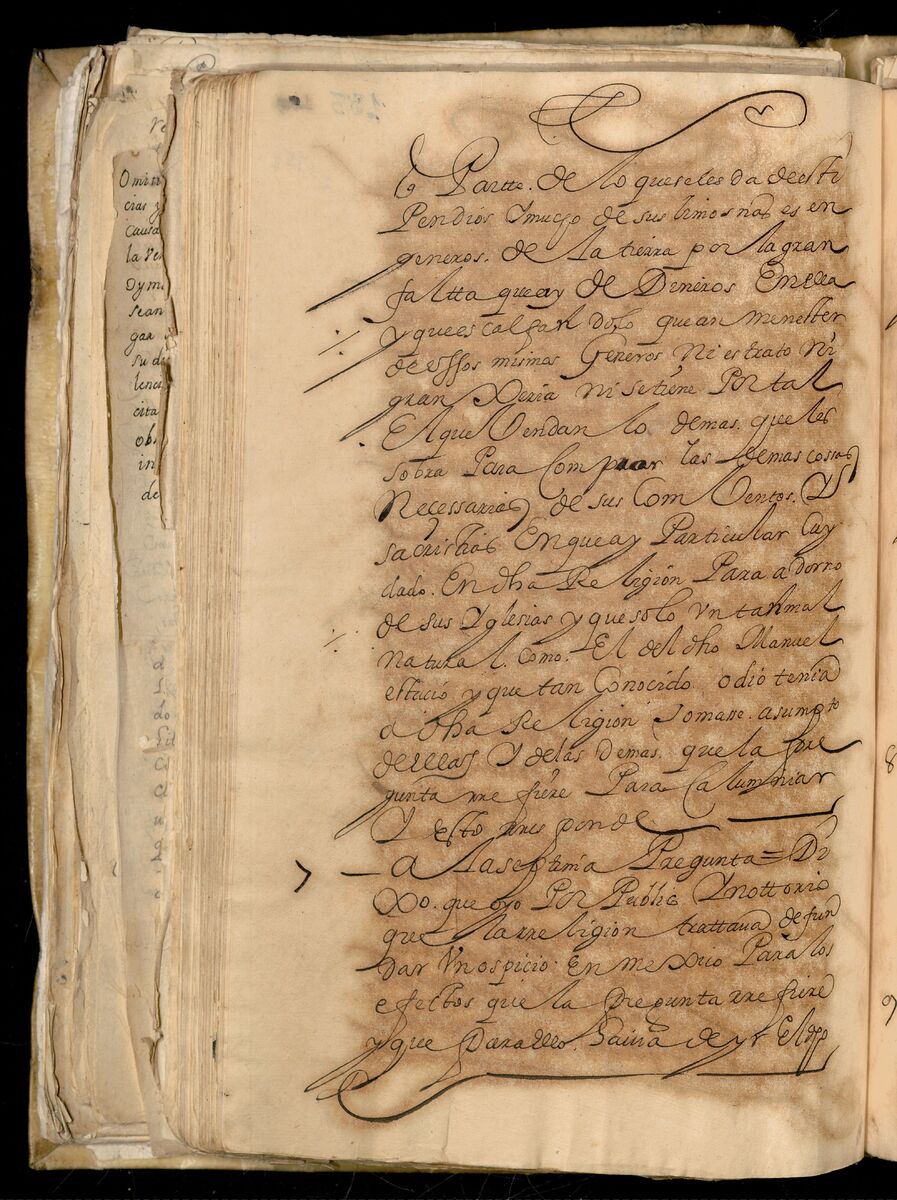 Omiti
cias y
Causa
la Ve
Dy m
sean
gar
su di
lenes
cita
ob
in
de
Partte. de lo queseles da de esti
Pendios Y mucho de sus limosnas es en
generos. de la tierra por la gran
faltta que ay de Dineros En ella
y que es calçan dolo que an menester
de essos mismos Generos Ni es trato Ni
gran xeria ni se tiene Por tal
El que Vendan lo demas. que les
sobra Para Comprar las demas cossas
Necessarias de sus Com Ventos. Y
sacristias En que ay Particular Cuy
dado. En dha Religion Para adorno
de sus Yglesias y que solo Vn tan mal
Natural. Como. El del dho Manuel
y que tan Conocido odio tenia
a dha Religion Tomare. asumpto
de ellas Y de las Demas. que la pre
gunta rre fiere Para Calumniar
Y esto rresponde
7 – A la septima Pregunta = Di
Xo. que oyo Por Publico Y nottorio
que la rreligion trattava de fun
dar Vn ospicio. En mexico Para los
efectos que la Pregunta rrefiere
y que Para ello. havia de yr El dho